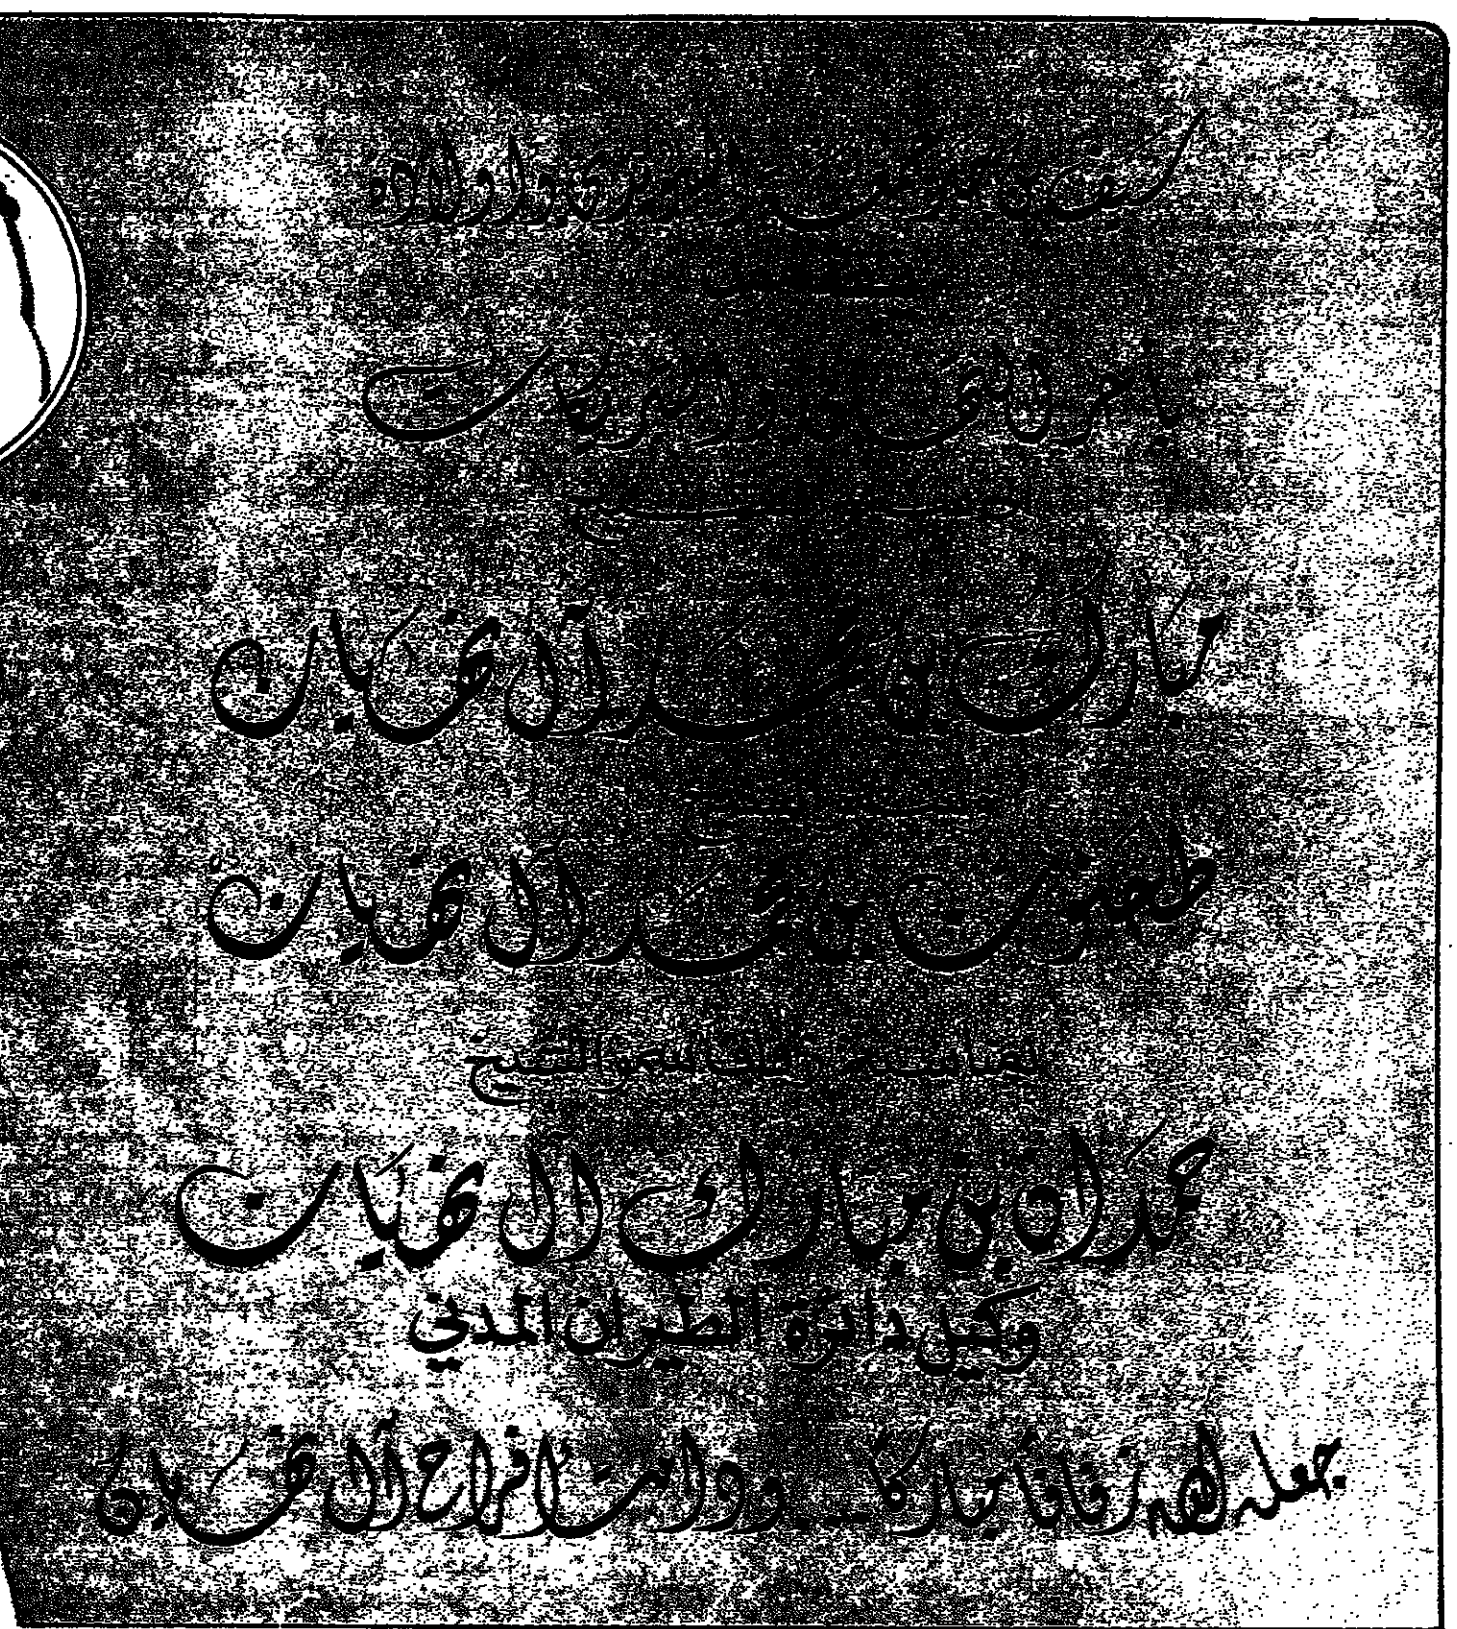 سيف بن محمد
بأحر التهاني والتبريكات
مبارك بن محمد آل نهيان
طحنون بن محمد آل نهيان
بمناسبة زفاف سمو الشيخ
حمدان بن مبارك آل نهيان
وكيل دائرة الطيران المدني
جعله الله زفافاً مباركا... ودامت أفراح آل نهيان